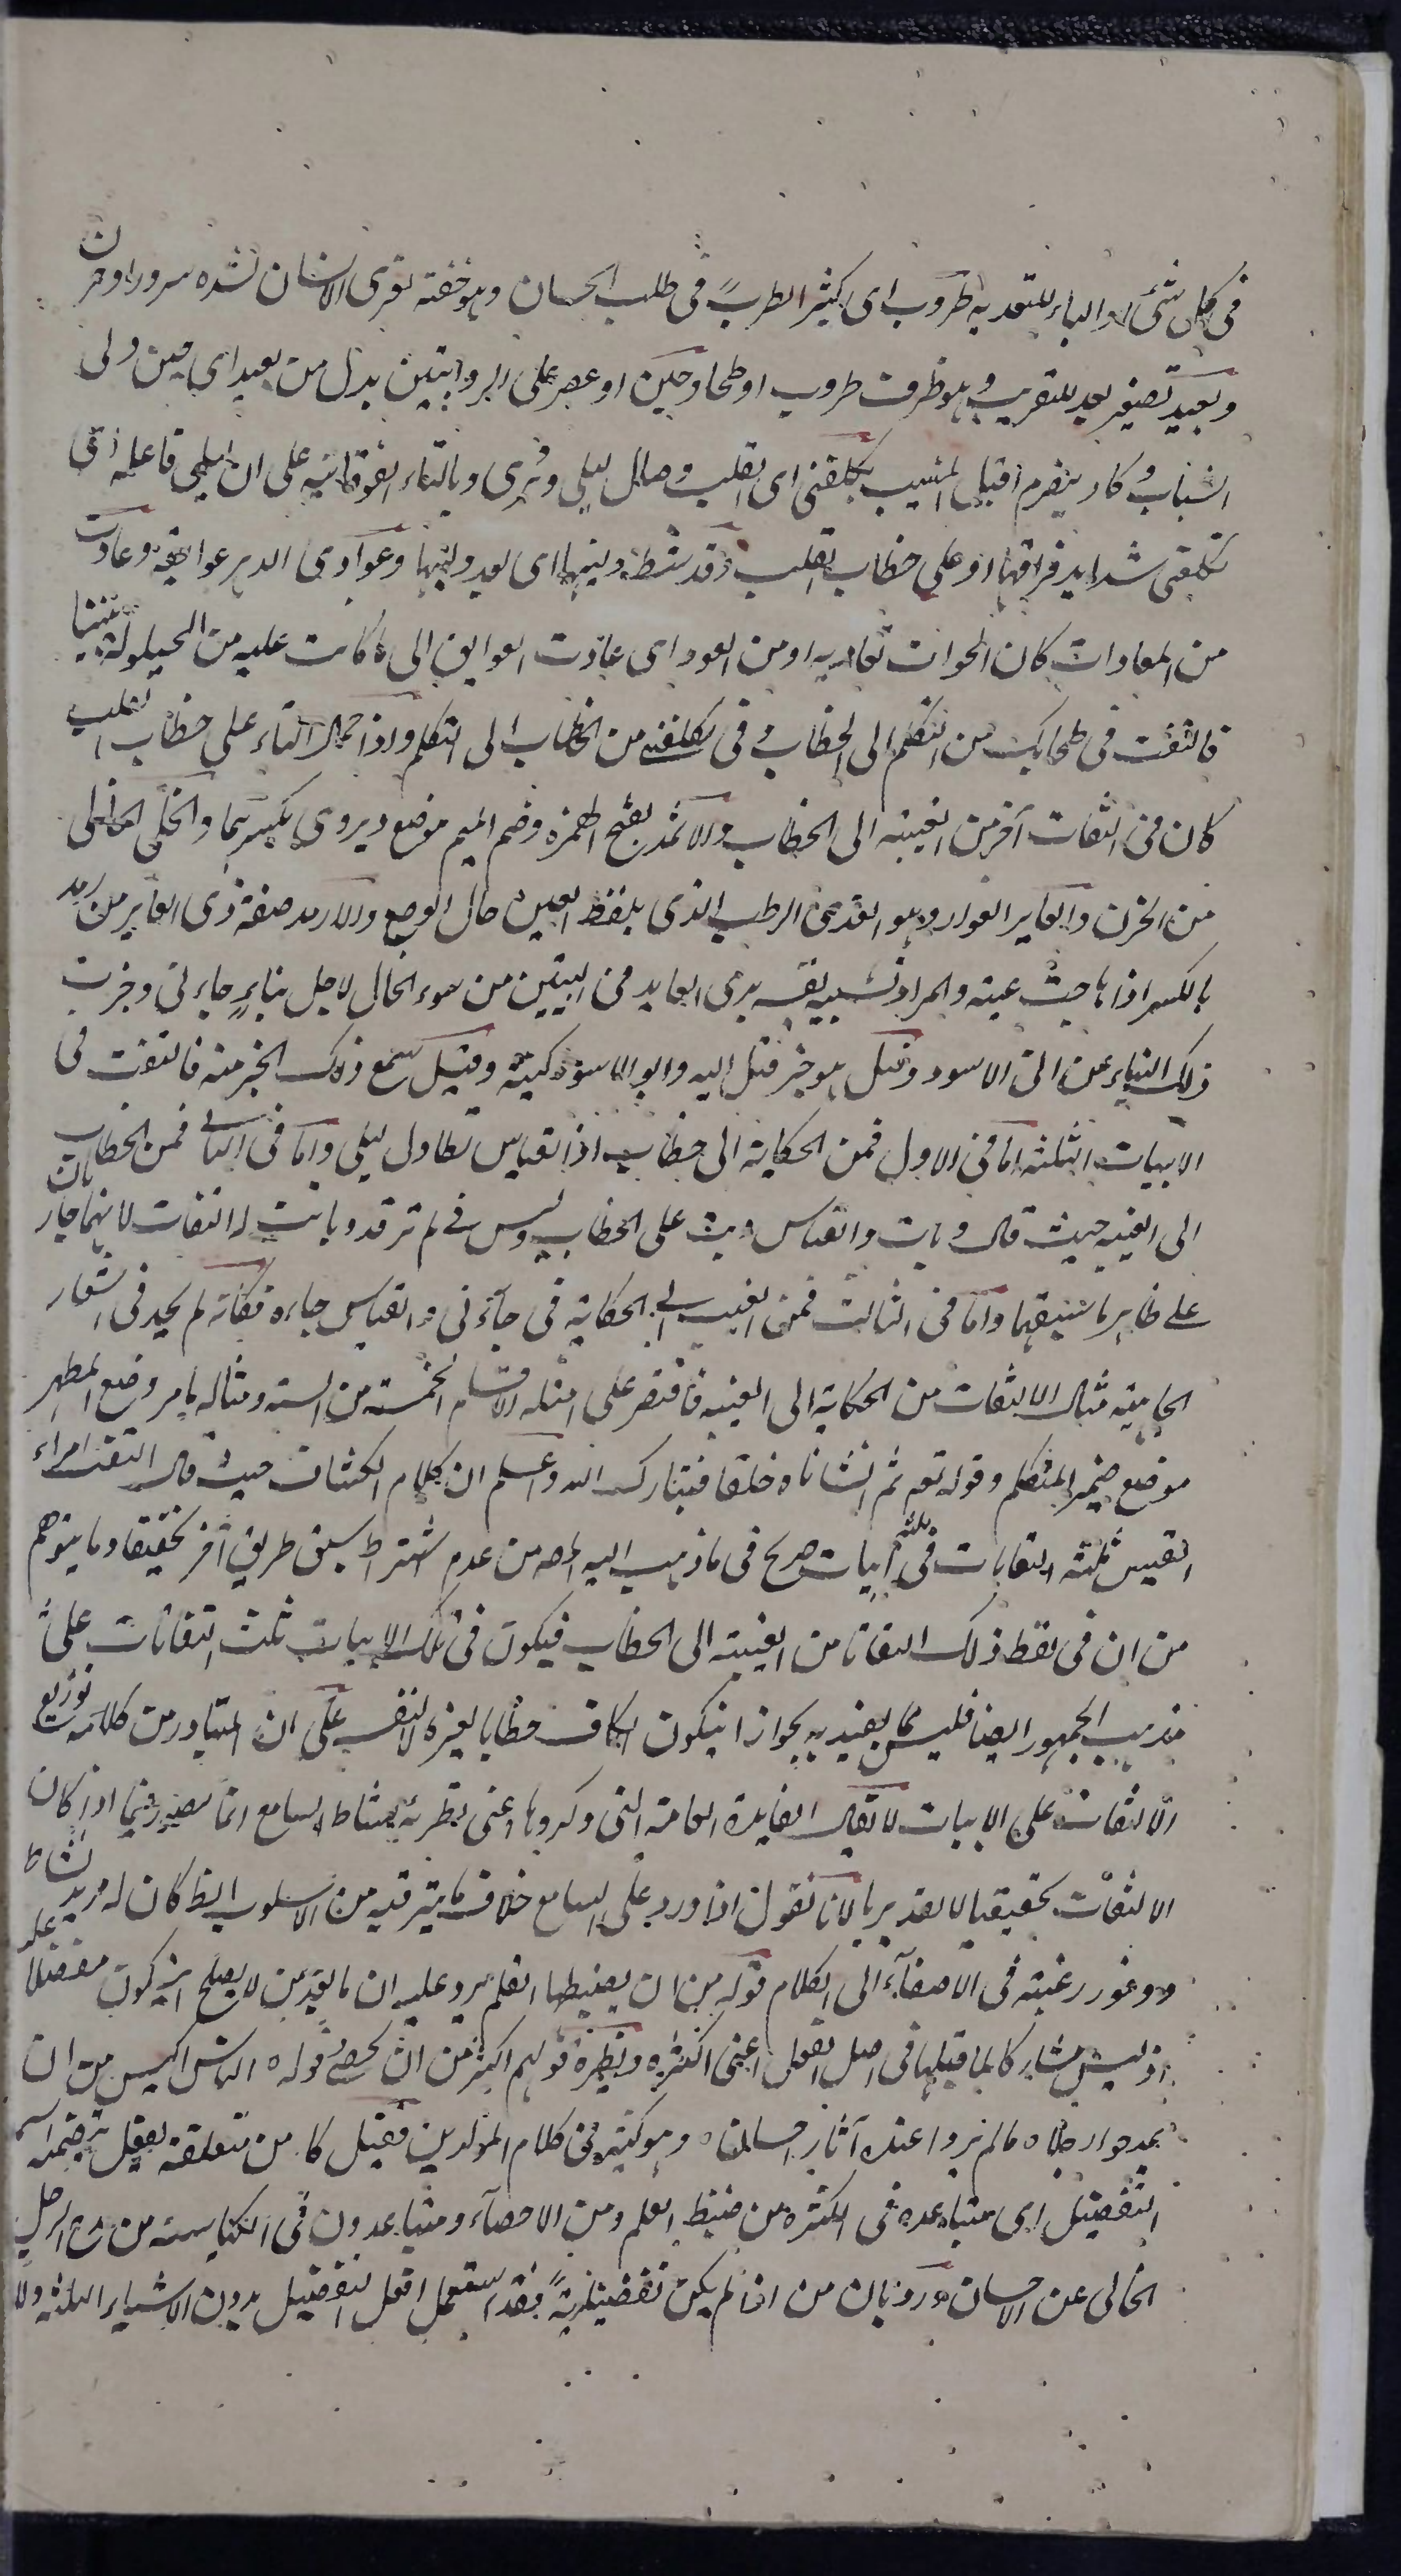 في كل شئ والباء للتعدية طروب اى كثير الطرب في طلب الحسان وهو خفة تعترى الانسان لشدة سرور او حزن
وبعيد تصغير بعد للتقريب وهو ظرف طروب او طحا وحين او عصر على الروايتين بدل من بعيد اى حين ولى
الشباب وكاد ينصرم اقبال المشيب يكلفنى اى القلب وصال ليلى ويروى وبالتاء الفوقانية على ان ليلى فاعله اى
تكلفنى شدايد فراقها او على خطاب القلب وقد شط وليها اى بعد وليها وعوادى الدهر عوايقه وعادت
من المعادات كان الحوادث تعاديه او من العود اى عادت العوايق الى ما كانت عليه من الحيلولة بيننا
فالتفت في طحا بك من التكلم الى الخطاب وفي تكلفنى من الخطاب الى التكلم واذا حمل التاء على خطاب القلب
كان في التفات آخر من الغيبة الى الخطاب والاثمد بفتح الهمزة وضم الميم موضع ويروى بكسرهما والخلى الخالى
من الحزن والعاير العوار وهو القذى الرطب الذى يلفظ العين حال الوجع والارمد صفة ذى العاير من رمد
بالكسر اذا هاجت عينه والمراد تشبيه نفسه بذى العاير في البيتين من سوء الحال لاجل نباء جاءنى وخبرت
ذلك النباء عن ابى الاسود وقيل هو خبر قتل ابيه وابو الاسود كنيته وقيل سمع ذلك الخبر منه فالتفت في
الابيات الثلثة اما في الاول فمن الحكاية الى خطاب اذ القياس تطاول ليلى واما في الثانى فمن الخطاب
الى الغيبة حيث قال وبات والقياس وبت على الخطاب وليس في لم ترقد وباتت له التفات لانهما جار بان
على ظاهر ما سبقهما واما في الثالث فمن الغيبة الى الحكاية في جاءنى والقياس جاءه فكانه لم يجد في اشعار
الجاهلية مثال الالتفات من الحكاية الى الغيبة فاقتصر على امثلة الاقسام الخمسة من الستة ومثاله ما مر وضع المظهر
موضع ضمير المتكلم وقوله تعم ثم انشاناه خلقا فتبارك الله واعلم ان كلام الكشاف حيث قال التفت امراء
القيس ثلثة التفاتات في ثلثة ابيات صريح في ما ذهب اليه المصـ من عدم اشتراط سبق طريق آخر تحقيقا وما يتوهم
من ان في لفظ ذلك التفاتا من الغيبة الى الخطاب فيكون في تلك الابيات ثلث التفاتات على
مذهب الجمهور ايضا فليس مما يعتد به لجواز ان يكون الكاف خطابا لغيره لا لنفسه على ان المتبادر من كلامه توزيع
الالتفات على الابيات لا يقال الفايدة العامة التى ذكروها اعنى تطرية نشاط السامع انما تصير فيما اذا كان
الالتفات تحقيقيا لا تقديريا لانا نقول اذا ورد على السامع خلاف ما يترقبه من الاسلوب الظ كان له مزيد نشاط
ووفور رغبته في الاصغاء الى الكلام قوله من ان يضبطها القلم يرد عليه ان ما بعد من لا يصلح ان يكون مفضلا عليه
اذ ليس مشاركا لما قبلها في اصل الفعل اعنى الكثرة ونظيره قولهم اكثر من ان يحصى وقوله الناس اكيس من ان
يمدحوا رجلا ما لم يروا عنده آثار احسان وهو كثير في كلام المولدين فقيل كلمة من متعلقة بفعل يتضمنه اسم
التفضيل اى متباعدة في الكثرة من ضبط القلم ومن الاحصاء ومتباعدون في الكياسة من مدح الرجل
الخالى عن الاحسان ورد بان من اذا لم يكن تفضيلية فقد استعمل افعل التفضيل بدون الاشياء الثلثة ولا